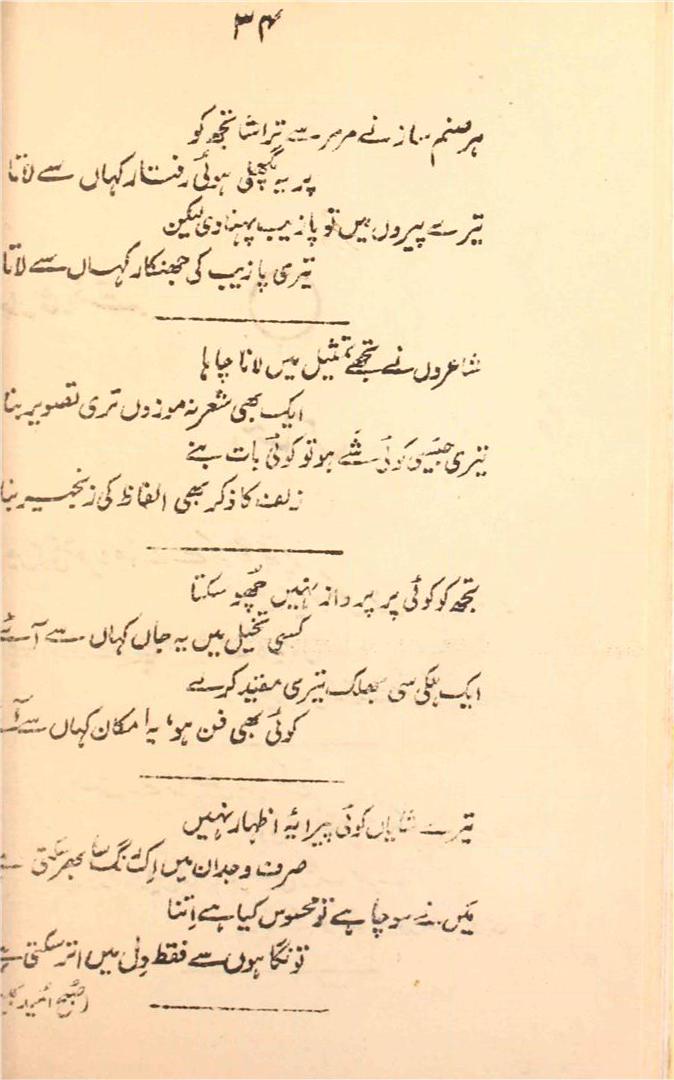 ۳۴
ہر صنم ساز نے مرمر سے تراشا تجھ کو
پر یہ پگھلی ہوئی رفتار کہاں سے لاتا
تیرے پیروں میں تو پازیب پہنا دی لیکن
تیری پازیب کی جھنکار کہاں سے لاتا
شاعروں نے تجھے تمثیل میں لانا چاہا
ایک بھی شعر نہ موزوں تری تصویر بنا
تیری جیسی کوئی شے ہو تو کوئی بات بنے
زلف کا ذکر بھی الفاظ کی زنجیر بنا
تجھ کو کوئی پرِ پرواز نہیں چھو سکتا
کسی تخیل میں یہ جاں کہاں سے آئے
ایک ہلکی سی جھلک تیری مقید کرے
کوئی بھی فن ہو، یہ امکان کہاں سے آئے
تیرے شایاں کوئی پیرایۂ اظہار نہیں
صرف وجدان میں اِک رنگ سا بھر سکتی ہے
مَیں نے سوچا ہے تو محسوس کیا ہے اِتنا
تو نگاہوں سے فقط دِل میں اتر سکتی ہے
(صُبح اُمید